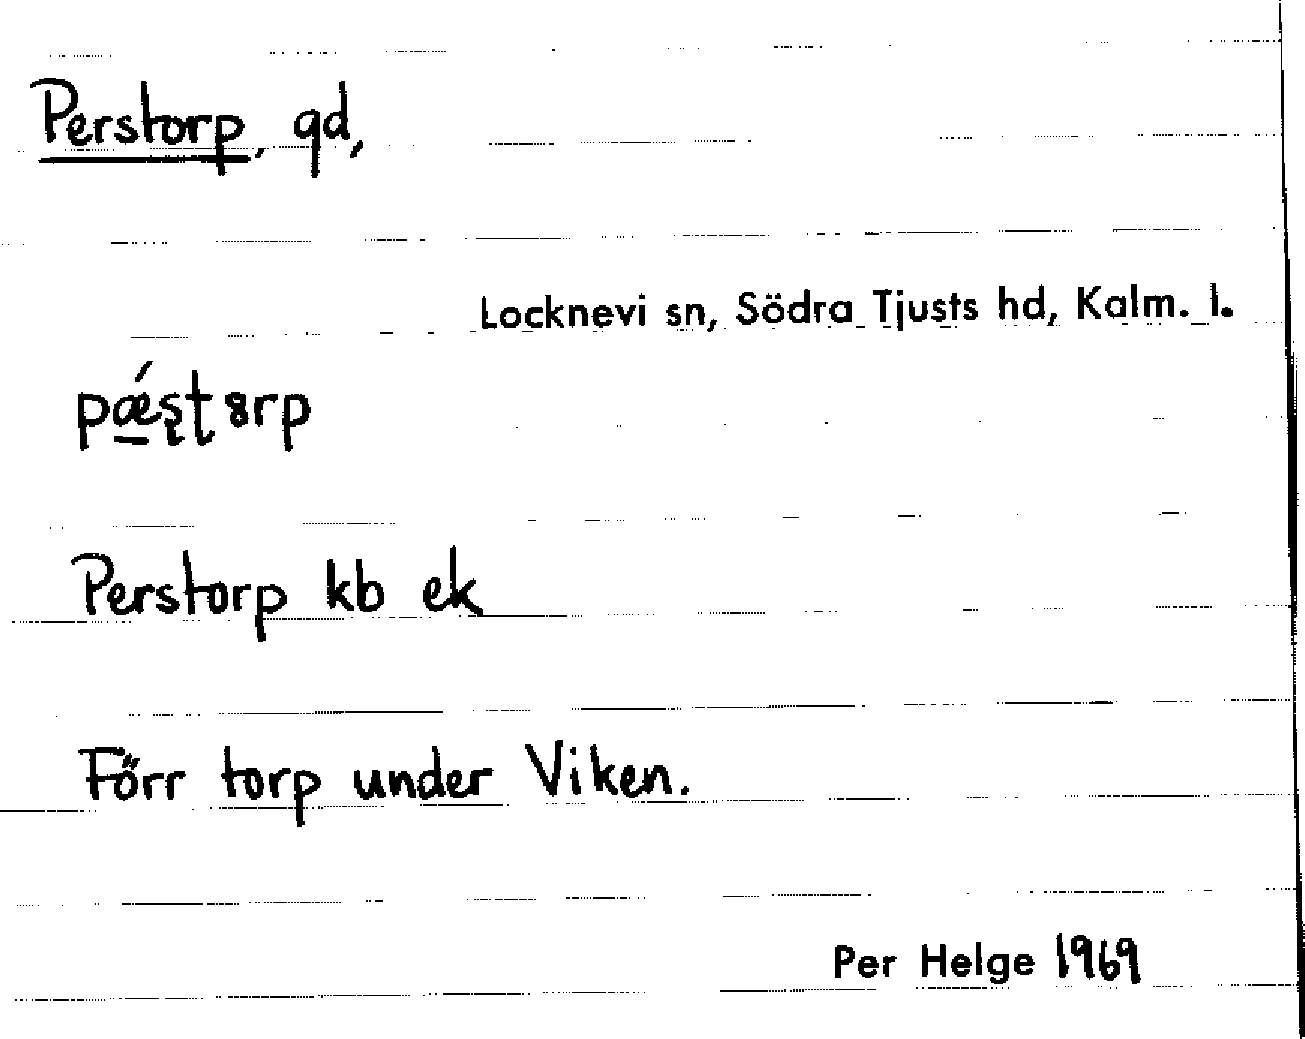 Perstorp, gd,
Locknevi sn, Södra Tjusts hd, Kalm. l.
pǽ̠ʂʈ8rp
Perstorp kb ek
Förr torp under Viken.
Per Helge 1969